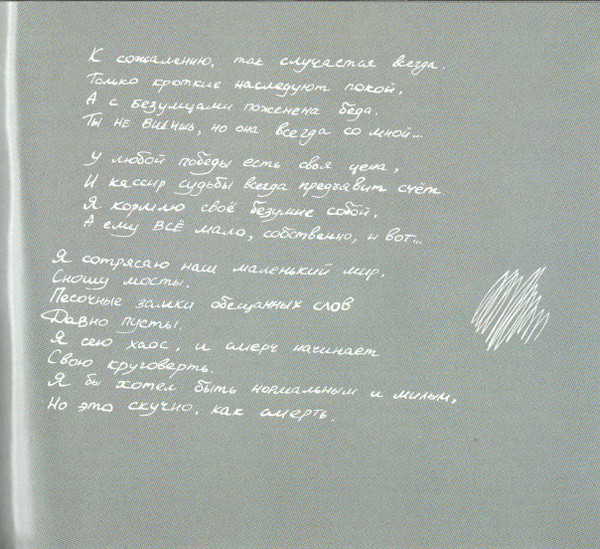 К сожалению, так случается всегда.
Только кроткие наследуют покой,
А с безумцами поженена беда.
Ты не видишь, но она всегда со мной...
У любой победы есть своя цена,
И кассир судьбы всегда предъявит счёт
Я кормлю своё безумие собой,
А ему ВСЁ мало, собственно, и вот...
Я сотрясаю наш маленький мир,
Сношу мосты.
Песочные замки обещанных слов
Давно пусты.
Я сею хаос, и смерч начинает
Свою круговерть.
Я бы хотел быть нормальным и милым,
Но это скучно, как смерть.